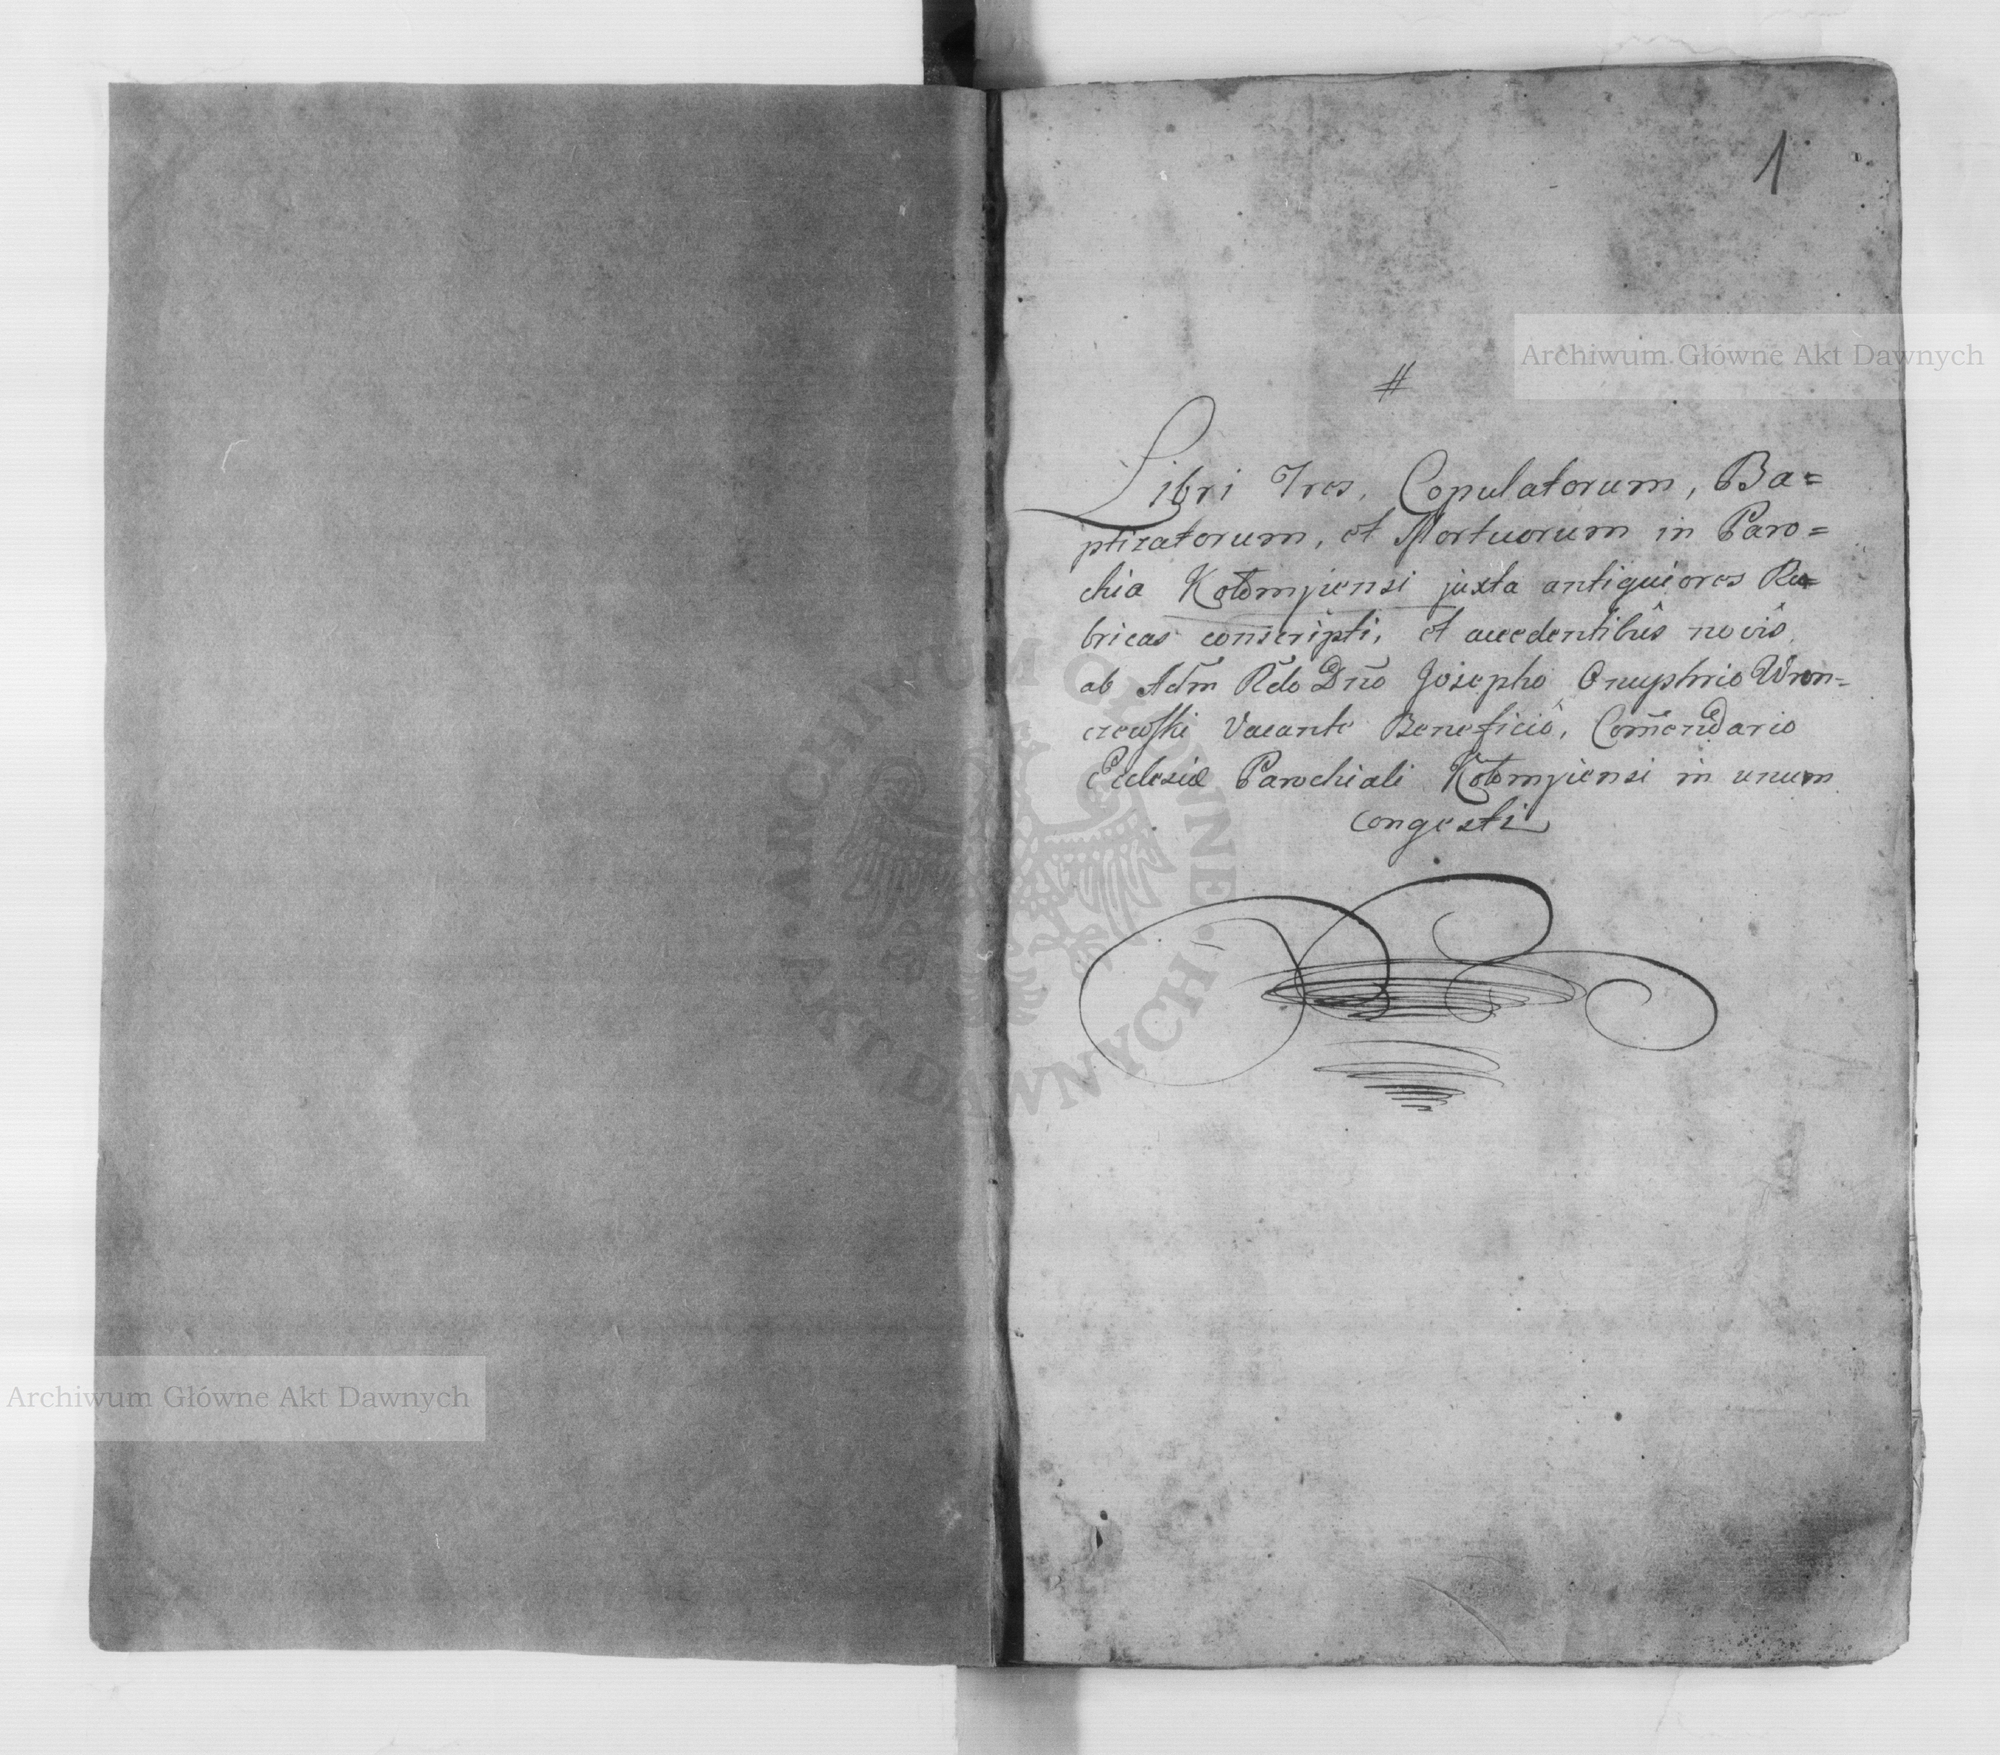 1
#
Libri Tres, Copulatorum, Ba=
ptizatorum, et Mortuorum in Paro=
chia Kołomyiensi juxta antiquiores Ru=
bricas conscripti, et accedentibûs novîs,
ab Adm̃ R̃do Dño Josepho Onuphrio Wron=
czewski Vacante Beneficiô, Com̃endario
Ecclesiæ Parochiali Kołomyiensi in unum
Congesti
Archiwum Główne Akt Dawnych
ARCHIWUM GŁÓWNE · AKT DAWNYCH ·
Archiwum Główne Akt Dawnych